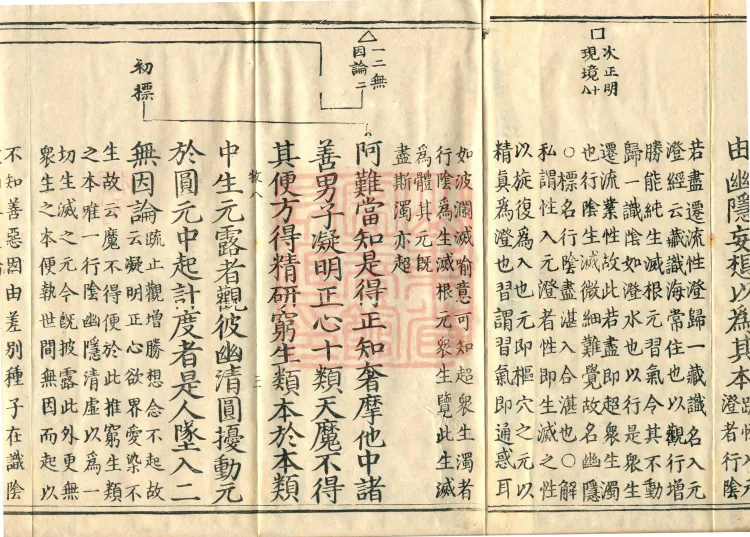 由幽隱妄想以為其本
澄者行陰
若盡遷流性澄歸一藏識名入元
澄經云藏識海常住也以觀行增
勝能純生滅根元習氣今其不動
歸一識陰如澄水也以行是衆生
遷流業性故此若盡即超衆生濁
也行陰生滅微細難覺故名幽隱
○標名行陰盡湛入合湛也○解
私謂性入元澄者性即生滅之性
以旋復為入也元即樞穴之元以
精真為澄也習謂習氣即通惑耳
次正明
現境
如波瀾滅喻意可知超衆生濁者
行陰為生滅根元衆生覽此生滅
為體其元既
盡斯濁亦超
△一二無
因論二
初標
阿難當知是得正知奢摩他中諸
善男子凝明正心十類天魔不得
其便方得精研窮生類本於本類
三
中生元露者觀彼幽清圓擾動元
於圓元中起計度者是人墜入二
無因論
疏止觀增勝想念不起故
云凝明正心欲界愛染不
生故云魔不得便於此推窮生類
之本唯一行陰幽隱清虛以為一
切生滅之元今既披露此外更無
衆生之本便執世間無因而起以
不知善惡因由差別種子在識陰